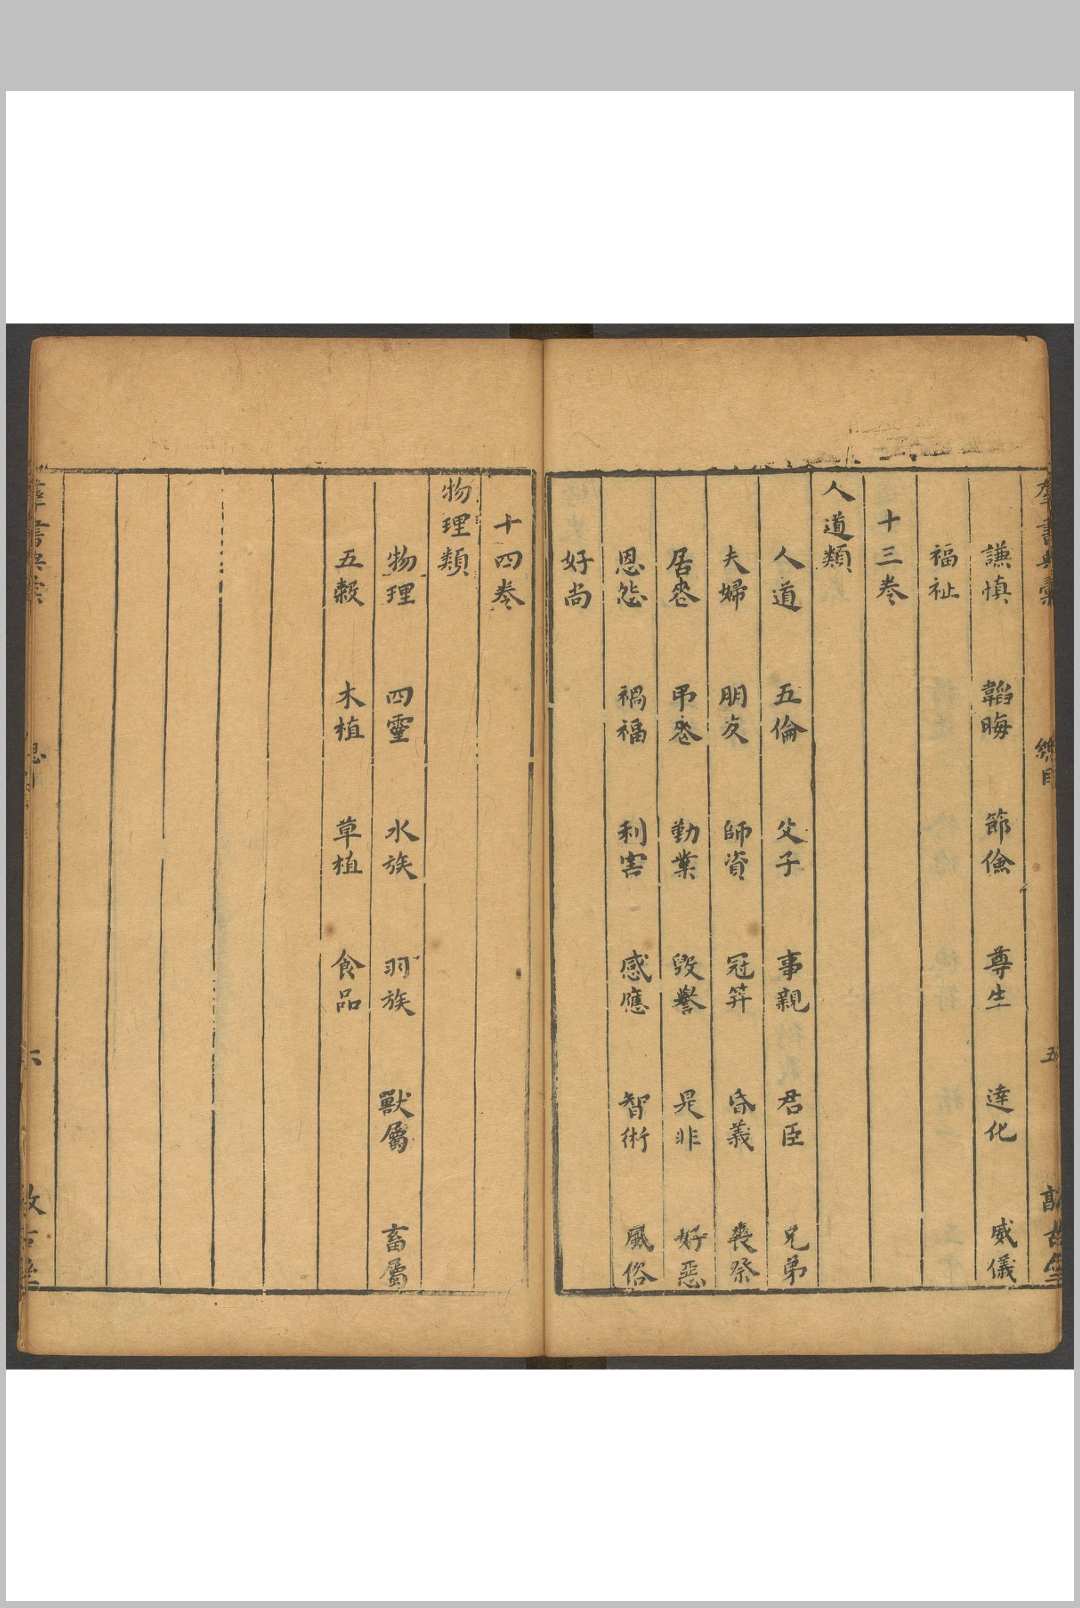 羣書典彙
總目
五
敦古堂
謙慎 韜晦 節儉 尊生 達化 威儀
福祉
十三卷
人道類
人道 五倫 父子 事親 君臣 兄弟
夫婦 朋友 師資 冠笄 昏義 喪祭
居喪 弔喪 勤業 毀譽 是非 好惡
恩怨 禍福 利害 感應 智術 風俗
好尚
十四卷
物理類
物理 四靈 水族 羽族 獸屬 畜屬
五穀 木植 草植 食品
羣書典彙
六
敦古堂